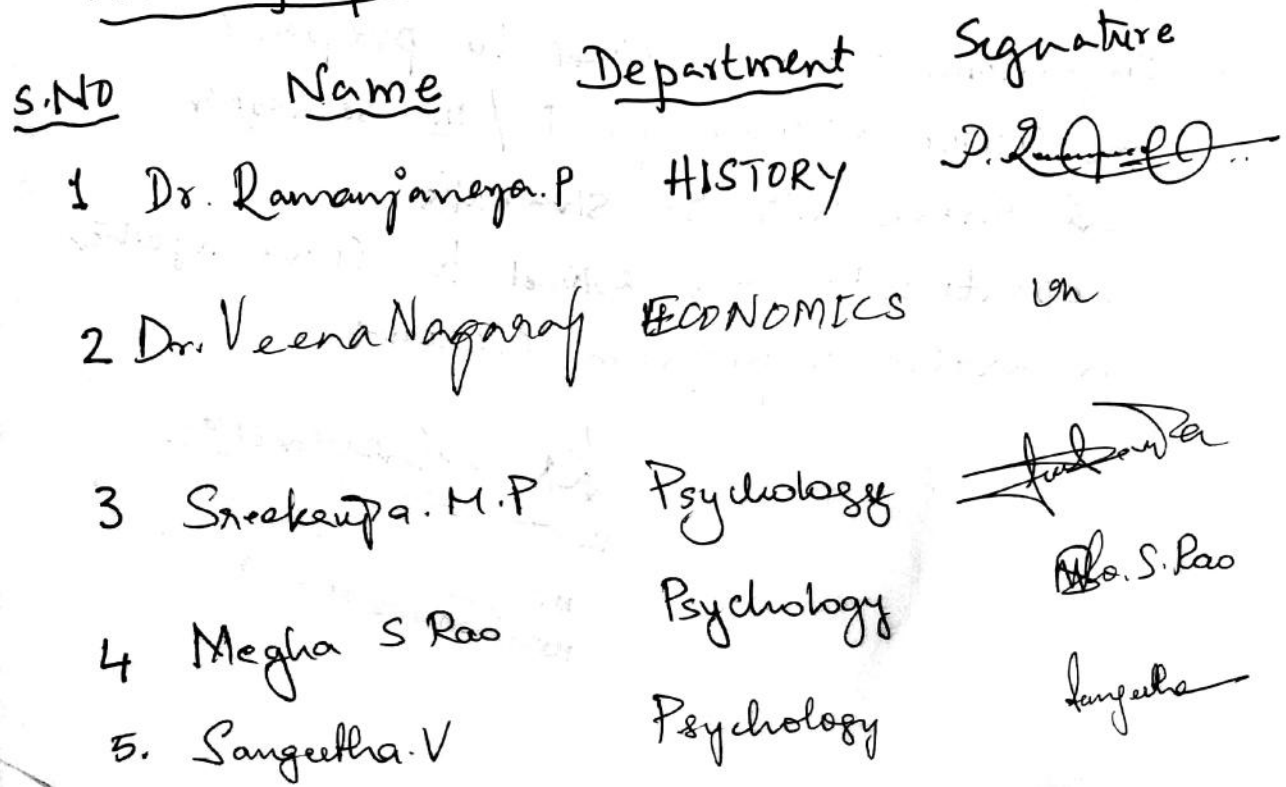 S.NO Name Department Signature
1 Dr. Ramanjaneya.P HISTORY P.
2 Dr. Veena Nagaraj ECONOMICS
3 Sreekrupa.M.P Psychology
4 Megha S Rao Psychology S.Rao
5. Sangeetha.V Psychology Sangeetha